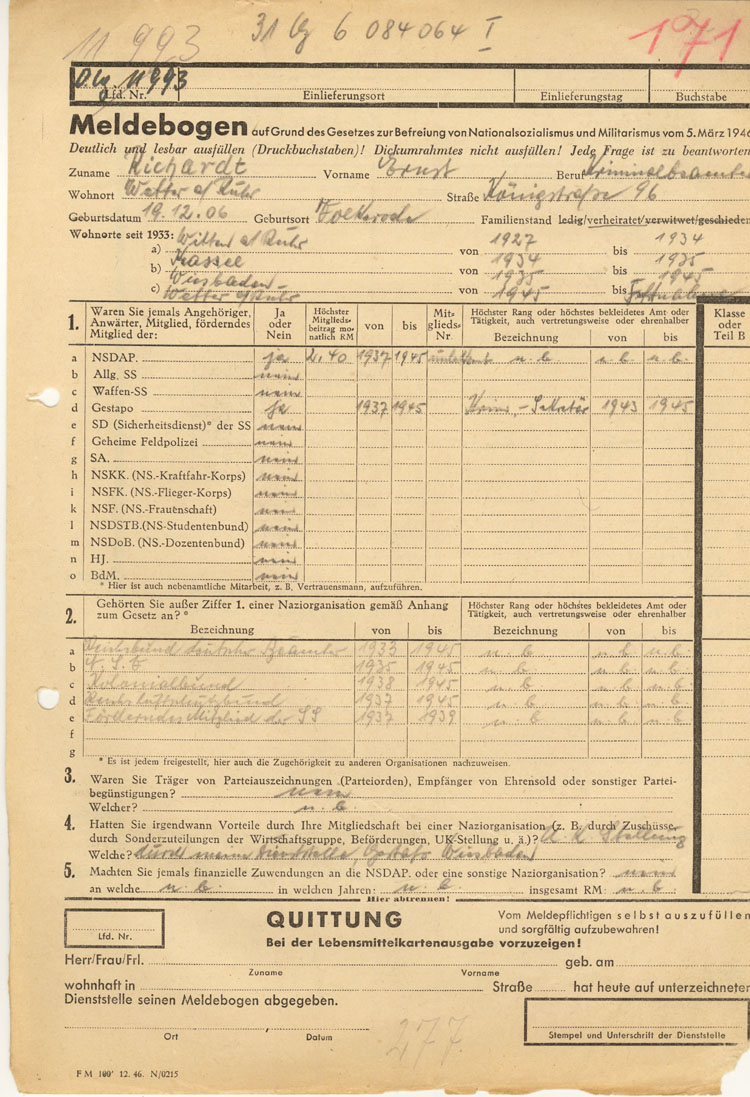 11 993 31 Lg 6 084 064 I 171
Olg. 11993
Lfd. Nr. Einlieferungsort Einlieferungstag Buchstabe
Meldebogen auf Grund des Gesetzes zur Befreiung von Nationalsozialismus und Militarismus vom 5. März 1946
Deutlich und lesbar ausfüllen (Druckbuchstaben)! Dickumrahmtes nicht ausfüllen! Jede Frage ist zu beantworten
Zuname Richardt Vorname Ernst Beruf Kriminalbeamter
Wohnort Wetter a/Ruhr Straße Königstraße 96
Geburtsdatum 19.12.06 Geburtsort Volkerode Familienstand ledig/verheiratet/verwitwet/geschieden
Wohnorte seit 1933:
a) Witten a/Ruhr von 1927 bis 1934
b) Kassel von 1934 bis 1935
c) Wiesbaden von 1935 bis 1945
Wetter a/Ruhr 1945
1. Waren Sie jemals Angehöriger, Anwärter, Mitglied, förderndes Mitglied der: Ja oder Nein Höchster Mitgliedsbeitrag monatlich RM von bis Mitglieds-Nr Höchster Rang oder höchstes bekleidetes Amt oder Tätigkeit, auch vertretungsweise oder ehrenhalber Klasse oder Teil B
Bezeichnung von bis
a NSDAP. ja 2.40 1937 1945 unbekannt n. b. n. b. n. b.
b Allg. SS nein
c Waffen-SS nein
d Gestapo ja 1937 1945 Krim.-Sekretär 1943 1945
e SD (Sicherheitsdienst)* der SS nein
f Geheime Feldpolizei nein
g SA. nein
h NSKK. (NS.-Kraftfahr-Korps) nein
i NSFK. (NS.-Flieger-Korps) nein
k NSF. (NS.-Frauenschaft) nein
l NSDSTB.(NS-Studentenbund) nein
m NSDoB. (NS.-Dozentenbund) nein
n HJ. nein
o BdM. nein
* Hier ist auch nebenamtliche Mitarbeit, z. B. Vertrauensmann, aufzuführen.
2. Gehörten Sie außer Ziffer 1. einer Naziorganisation gemäß Anhang zum Gesetz an?* Höchster Rang oder höchstes bekleidetes Amt oder Tätigkeit, auch vertretungsweise oder ehrenhalber
Bezeichnung von bis Bezeichnung von bis
a Reichsbund deutscher Beamter 1933 1945 n. b. n. b. n. b.
b N. S. V. 1935 1945 n. b. n. b. n. b.
c Kolonialbund 1938 1945 n. b. n. b. n. b.
d Reichsluftschutzbund 1937 1945 n. b. n. b. n. b.
e Förderndes Mitglied der SS 1937 1939 n. b. n. b. n. b.
f
g
* Es ist jedem freigestellt, hier auch die Zugehörigkeit zu anderen Organisationen nachzuweisen.
3. Waren Sie Träger von Parteiauszeichnungen (Parteiorden), Empfänger von Ehrensold oder sonstiger Partei-
begünstigungen? nein
Welcher? n. b.
4. Hatten Sie irgendwann Vorteile durch Ihre Mitgliedschaft bei einer Naziorganisation (z. B. durch Zuschüsse,
durch Sonderzuteilungen der Wirtschaftsgruppe, Beförderungen, UK-Stellung u. ä.)? U. K. Stellung
Welche? durch meine Dienststelle, Gestapo Wiesbaden
5. Machten Sie jemals finanzielle Zuwendungen an die NSDAP. oder eine sonstige Naziorganisation? nein
an welche n. b. in welchen Jahren: n. b. insgesamt RM: n. b.
Hier abtrennen!
QUITTUNG Vom Meldepflichtigen selbst auszufüllen
und sorgfältig aufzubewahren!
Lfd. Nr. Bei der Lebensmittelkartenausgabe vorzuzeigen!
Herr/Frau/Frl. geb. am
Zuname Vorname
wohnhaft in Straße hat heute auf unterzeichneter
Dienststelle seinen Meldebogen abgegeben.
Ort Datum 277 Stempel und Unterschrift der Dienststelle
F M 100' 12. 46. N/0215